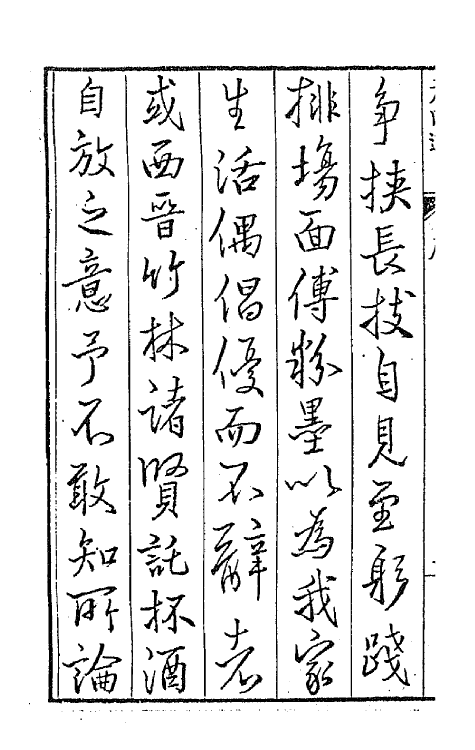 争挾長技自見至躬踐
排場面傅粉墨以為我家
生活偶倡優而不辭者
或西晉竹林諸賢託杯酒
自放之意予不敢知所論